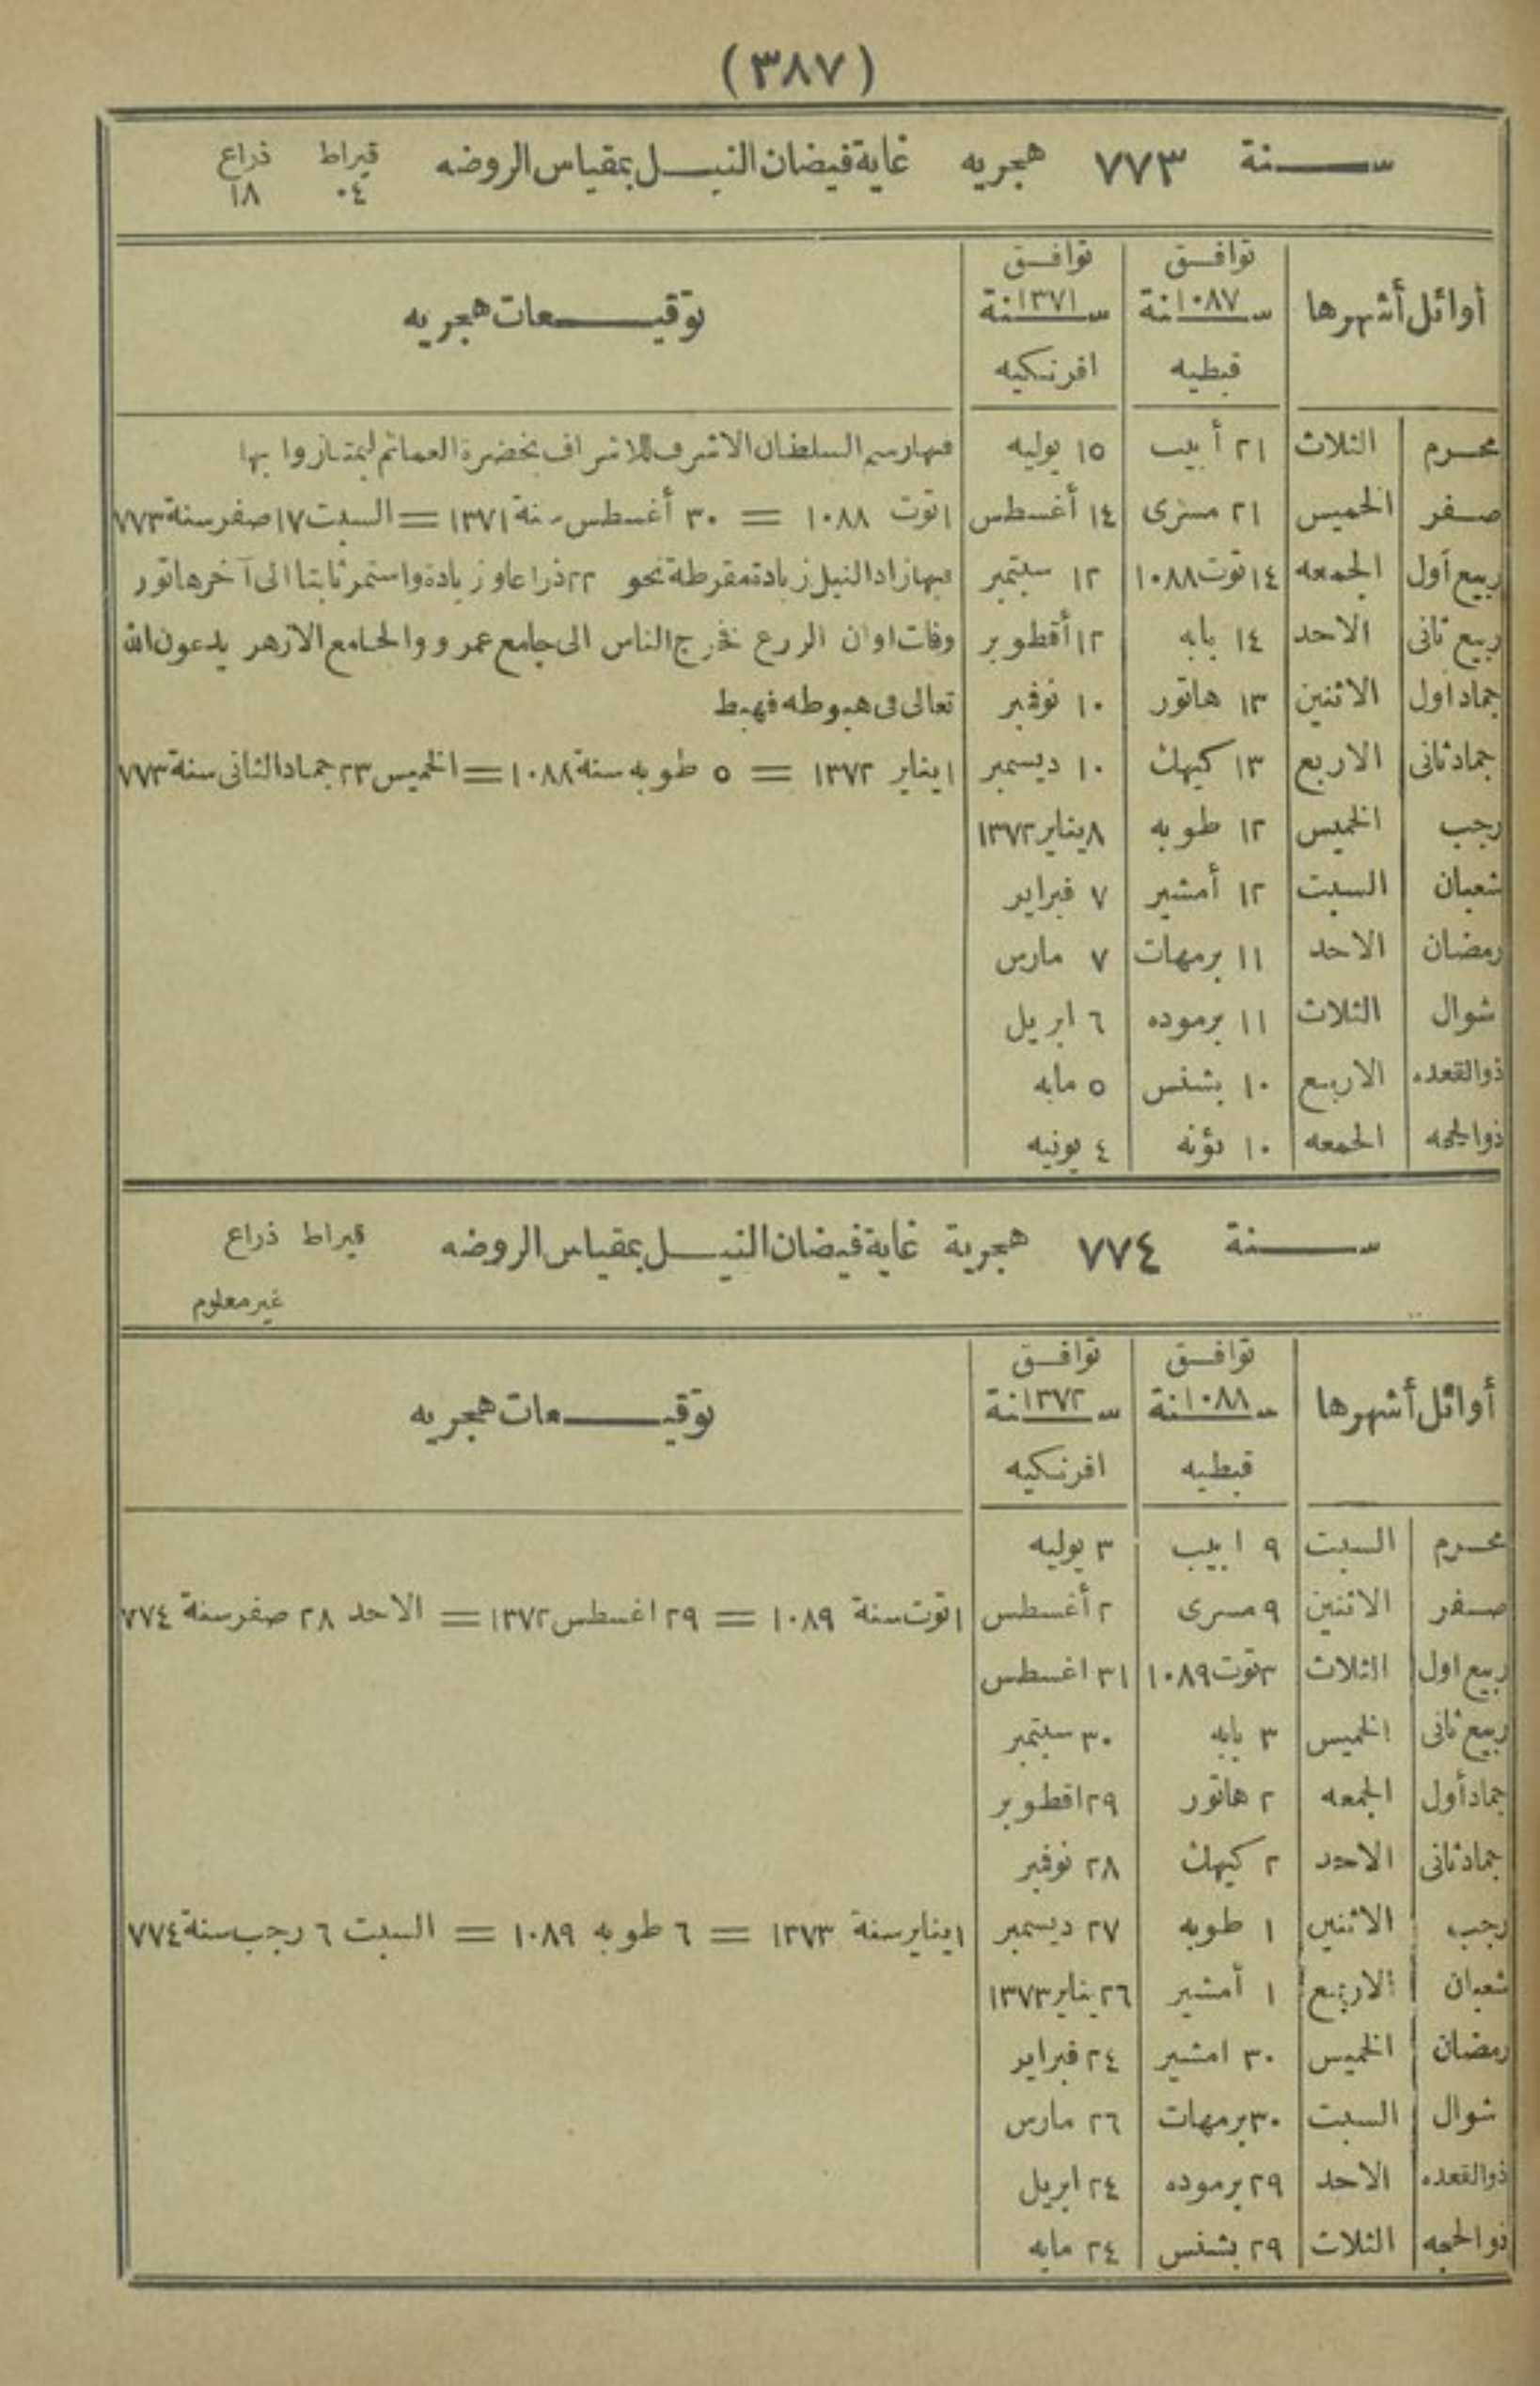 (٣٨٧)
سنة ٧٧٣ هجريه غاية فيضان النيل بمقياس الروضه قيراط ذراع
٠٤ ١٨
أوائل أشهرها توافق سنة ١٠٨٧ قبطيه توافق سنة ١٣٧١ افرنكيه توقيعات هجريه
محرم الثلاث ٢١ أبيب ١٥ يوليه فيها رسم السلطان الاشرف للاشراف بخضرة العمائم ليمتازوا بها
صفر الخميس ٢١ مسرى ١٤ أغسطس ١ توت ١٠٨٨ = ٣٠ أغسطس سنة ١٣٧١ = السبت ١٧ صفر سنة ٧٧٣
ربيع أول الجمعه ١٤ توت ١٠٨٨ ١٢ سبتمبر فيها زاد النيل زيادة مفرطة نحو ٢٢ ذراعا وزيادة واستمر ثابتا الى آخر هاتور
ربيع ثانى الاحد ١٤ بابه ١٢ أقطوبر وفات اوان الزرع فخرج الناس الى جامع عمرو والجامع الازهر يدعون الله
جماد اول الاثنين ١٣ هاتور ١٠ نوفمبر تعالى فى هبوطه فهبط
جماد ثانى الاربع ١٣ كيهك ١٠ ديسمبر ١ يناير ١٣٧٢ = ٥ طوبه سنة ١٠٨٨ = الخميس ٢٣ جماد الثانى سنة ٧٧٣
رجب الخميس ١٢ طوبه ٨ يناير ١٣٧٢
شعبان السبت ١٢ أمشير ٧ فبراير
رمضان الاحد ١١ برمهات ٧ مارس
شوال الثلاث ١١ برموده ٦ ابريل
ذوالقعده الاربع ١٠ بشنس ٥ مايه
ذوالحجه الجمعه ١٠ بؤنه ٤ يونيه
سنة ٧٧٤ هجرية غاية فيضان النيل بمقياس الروضه قيراط ذراع
غير معلوم
أوائل أشهرها توافق سنة ١٠٨٨ قبطيه توافق سنة ١٣٧٢ افرنكيه توقيعات هجريه
محرم السبت ٩ ابيب ٣ يوليه
صفر الاثنين ٩ مسرى ٢ أغسطس ١ توت سنة ١٠٨٩ = ٢٩ اغسطس ١٣٧٢ = الاحد ٢٨ صفر سنة ٧٧٤
ربيع اول الثلاث ٣ توت ١٠٨٩ ٣١ اغسطس
ربيع ثانى الخميس ٣ بابه ٣٠ سبتمبر
جماد أول الجمعه ٢ هاتور ٢٩ اقطوبر
جماد ثانى الاحد ٢ كيهك ٢٨ نوفمبر
رجب الاثنين ١ طوبه ٢٧ ديسمبر ١ يناير سنة ١٣٧٣ = ٦ طوبه ١٠٨٩ = السبت ٦ رجب سنة ٧٧٤
شعبان الاربع ١ أمشير ٢٦ يناير ١٣٧٣
رمضان الخميس ٣٠ امشير ٢٤ فبراير
شوال السبت ٣٠ برمهات ٢٦ مارس
ذوالقعده الاحد ٢٩ برموده ٢٤ ابريل
ذوالحجه الثلاث ٢٩ بشنس ٢٤ مايه